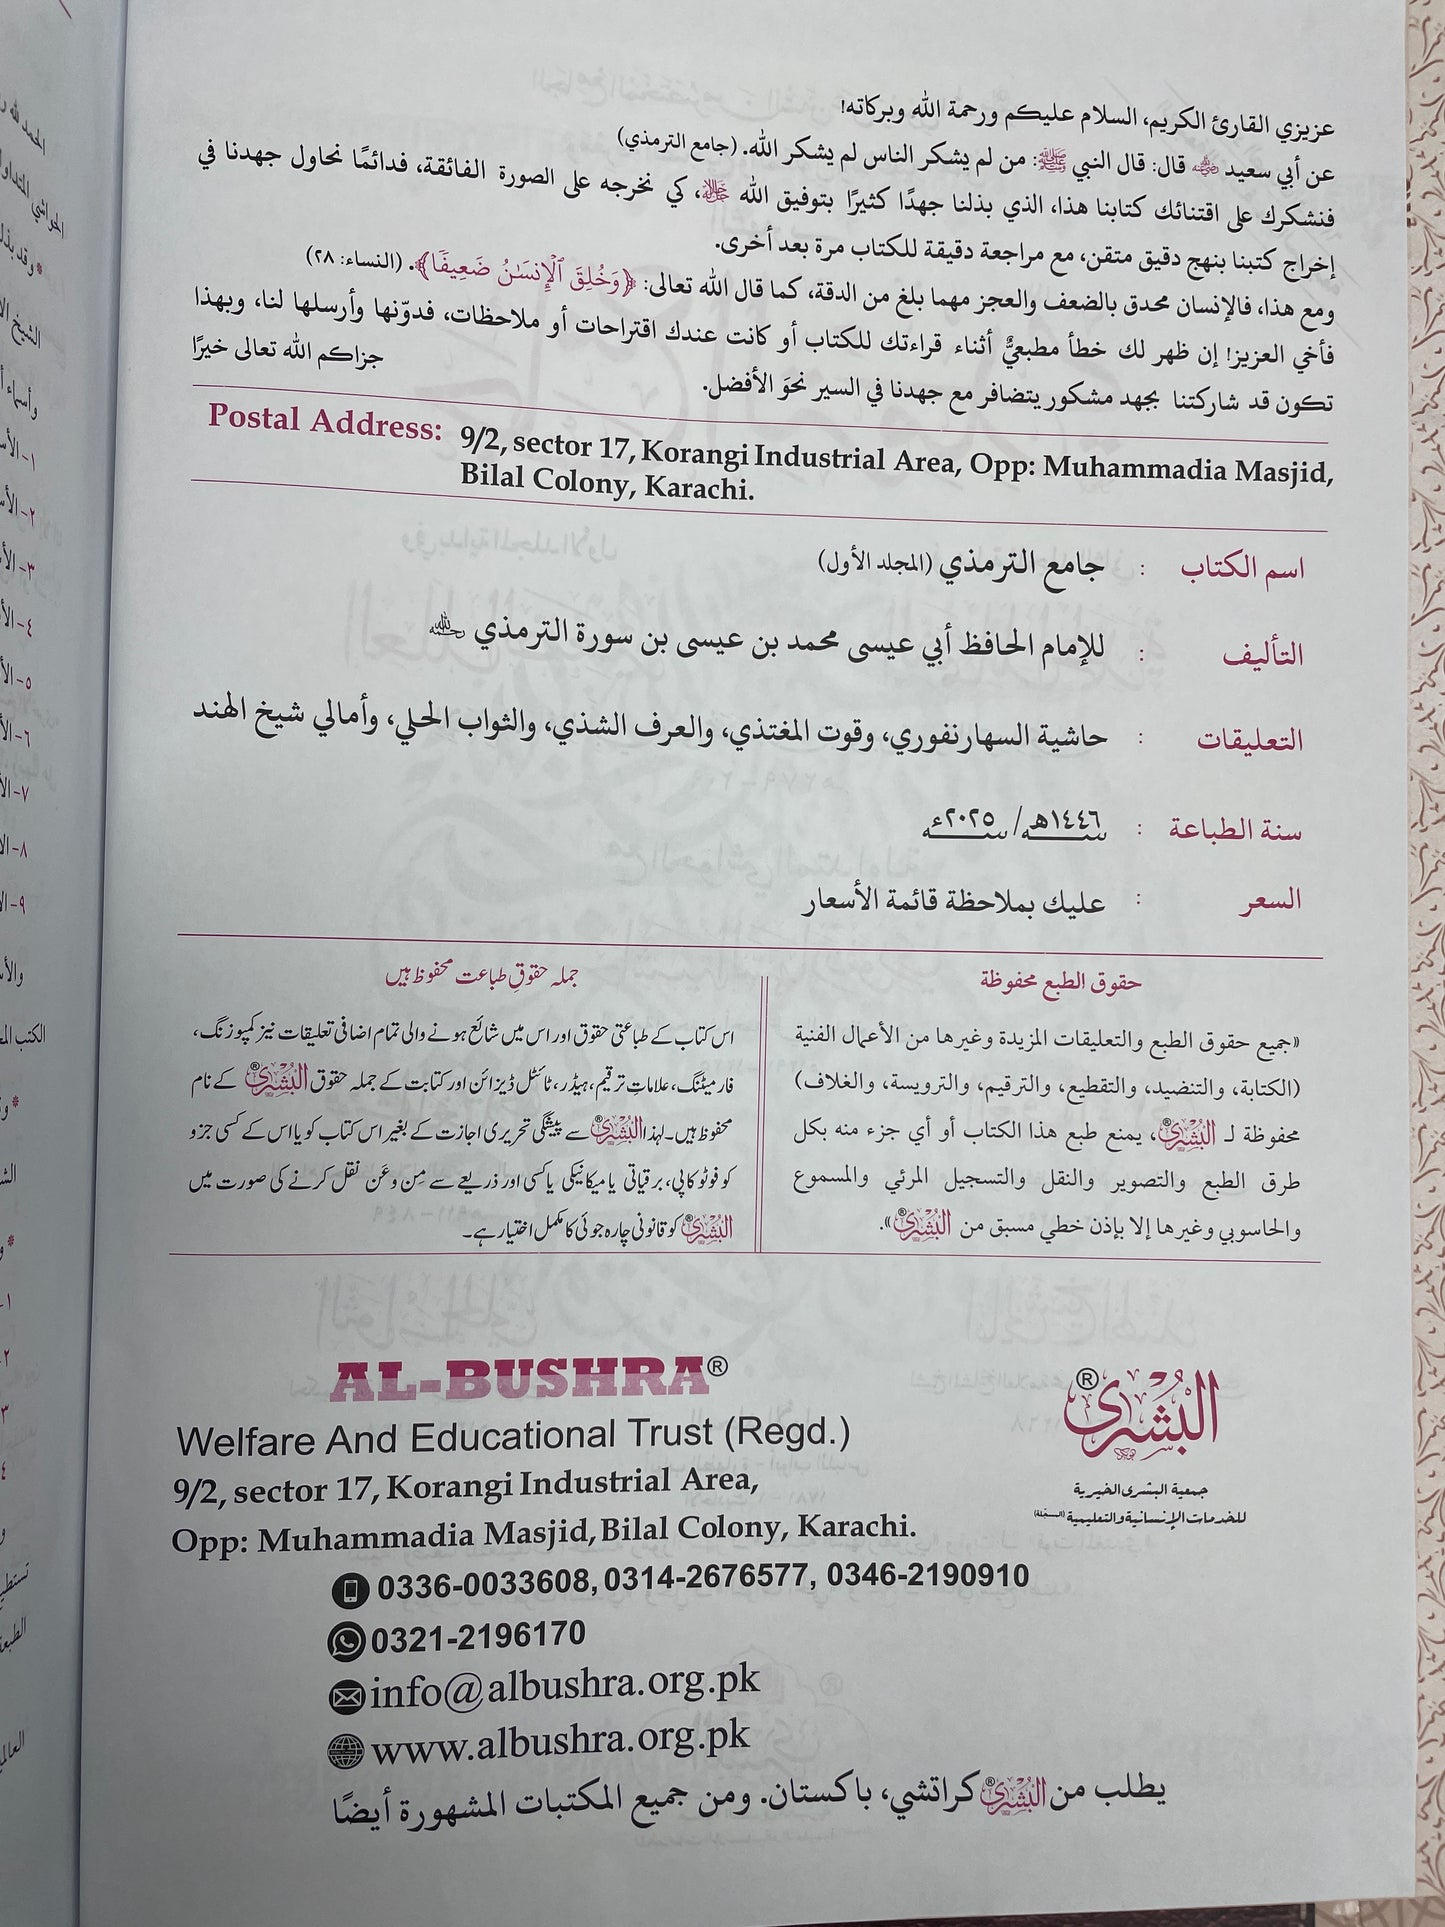 عزيزي القارئ الكريم، السلام عليكم ورحمة الله وبركاته!
عن أبي سعيد رضي الله عنه قال: قال النبي ﷺ: من لم يشكر الناس لم يشكر الله. (جامع الترمذي)
فنشكرك على اقتنائك كتابنا هذا، الذي بذلنا جهدًا كثيرًا بتوفيق الله ﷻ، كي نخرجه على الصورة الفائقة، فدائمًا نحاول جهدنا في
إخراج كتبنا بنهج دقيق متقن، مع مراجعة دقيقة للكتاب مرة بعد أخرى.
ومع هذا، فالإنسان محدق بالضعف والعجز مهما بلغ من الدقة، كما قال الله تعالى: ﴿وَخُلِقَ ٱلْإِنسَٰنُ ضَعِيفًا﴾. (النساء: ٢٨)
فأخي العزيز! إن ظهر لك خطأ مطبعيٌّ أثناء قراءتك للكتاب أو كانت عندك اقتراحات أو ملاحظات، فدوّنها وأرسلها لنا، وبهذا
تكون قد شاركتنا بجهد مشكور يتضافر مع جهدنا في السير نحوَ الأفضل. جزاكم الله تعالى خيرًا
Postal Address: 9/2, sector 17, Korangi Industrial Area, Opp: Muhammadia Masjid,
Bilal Colony, Karachi.
اسم الكتاب : جامع الترمذي (المجلد الأول)
التأليف : للإمام الحافظ أبي عيسى محمد بن عيسى بن سورة الترمذي رحمه الله
التعليقات : حاشية السهارنفوري، وقوت المغتذي، والعرف الشذي، والثواب الحلي، وأمالي شيخ الهند
سنة الطباعة : سنة ١٤٤٦هـ/ سنة ٢٠٢٥ء
السعر : عليك بملاحظة قائمة الأسعار
حقوق الطبع محفوظة
«جميع حقوق الطبع والتعليقات المزيدة وغيرها من الأعمال الفنية
(الكتابة، والتنضيد، والتقطيع، والترقيم، والترويسة، والغلاف)
محفوظة لـ البُشرى®، يمنع طبع هذا الكتاب أو أي جزء منه بكل
طرق الطبع والتصوير والنقل والتسجيل المرئي والمسموع
والحاسوبي وغيرها إلا بإذن خطي مسبق من البُشرى®».
جملہ حقوقِ طباعت محفوظ ہیں
اس کتاب کے طباعتی حقوق اور اس میں شائع ہونے والی تمام اضافی تعلیقات نیز کمپوزنگ،
فارمیٹنگ، علاماتِ ترقیم، ہیڈر، ٹائٹل ڈیزائن اور کتابت کے جملہ حقوق البُشرى® کے نام
محفوظ ہیں۔ لہذا البُشرى® سے پیشگی تحریری اجازت کے بغیر اس کتاب کو یا اس کے کسی جزو
کو فوٹو کاپی، برقیاتی یا میکانیکی یا کسی اور ذریعے سے مِن وعَن نقل کرنے کی صورت میں
البُشرى® کو قانونی چارہ جوئی کا مکمل اختیار ہے۔
AL-BUSHRA®
Welfare And Educational Trust (Regd.)
9/2, sector 17, Korangi Industrial Area,
Opp: Muhammadia Masjid, Bilal Colony, Karachi.
البُشرى®
جمعية البشرى الخيرية
للخدمات الإنسانية والتعليمية (المسجّلة)
0336-0033608, 0314-2676577, 0346-2190910
0321-2196170
info@albushra.org.pk
www.albushra.org.pk
يطلب من البُشرى® كراتشي، باكستان. ومن جميع المكتبات المشهورة أيضًا